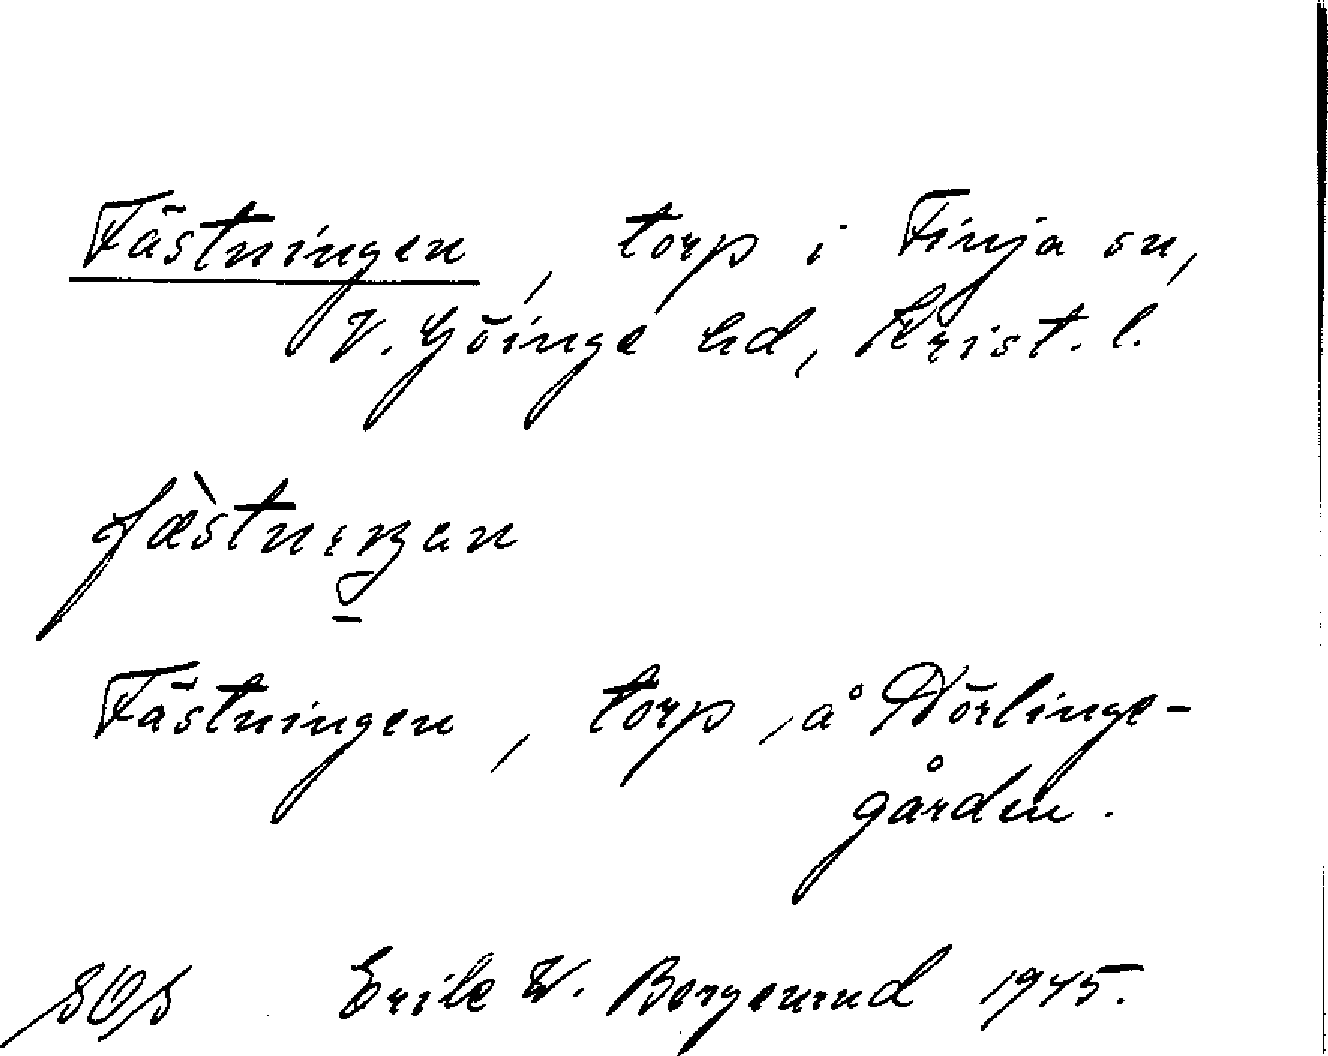 Fästningen, torp i Finja sn,
V. Göinge hd, Krist. l.
fæ̀stnıŋan
Fästningen, torp, å Nörlinge-
gården.
SOS Erik W. Bergenrud 1945.